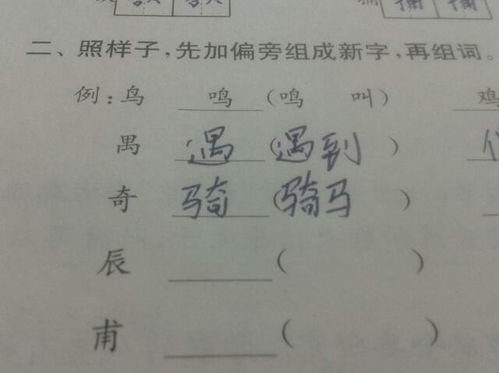 二、照样子,先加偏旁组成新字,再组词。
例:鸟 鸣 (鸣 叫) 鸡
禺 遇 (遇到)
奇 骑 (骑马)
辰 ( )
甫 ( )